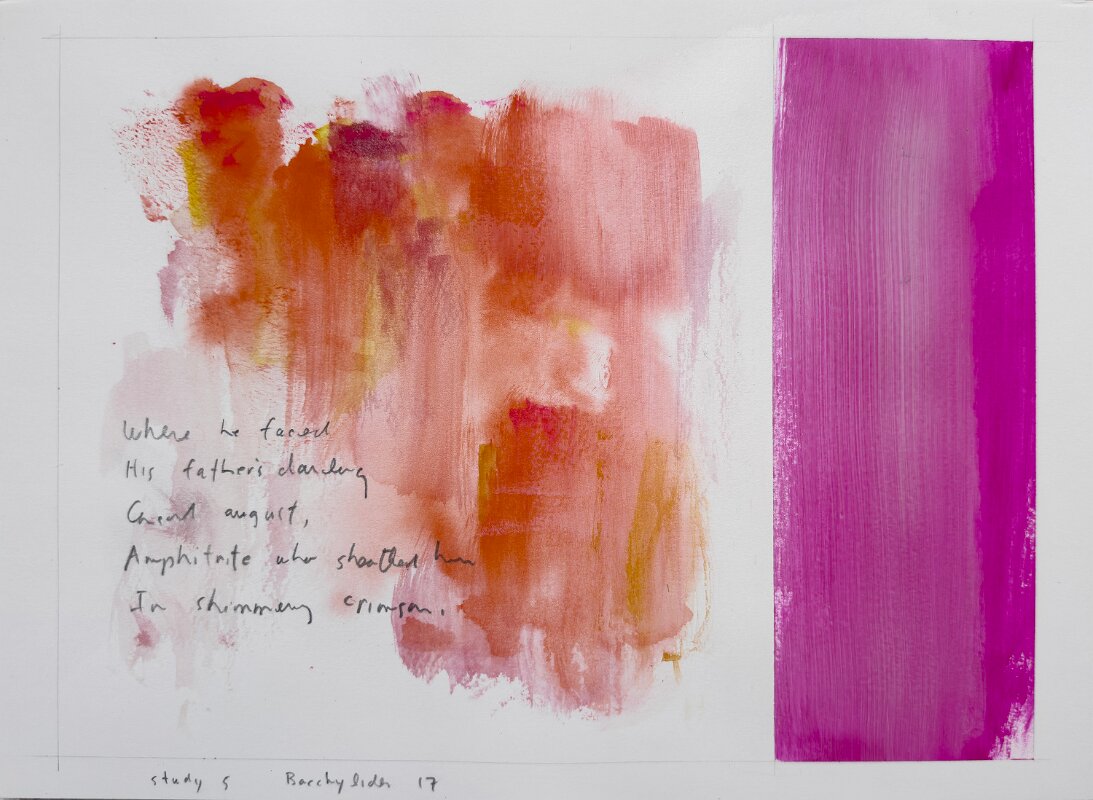 Where he faced
His father's darling
august,
Amphitrite who sheathed him
In shimmery crimson.
study 5 Bacchylides 17